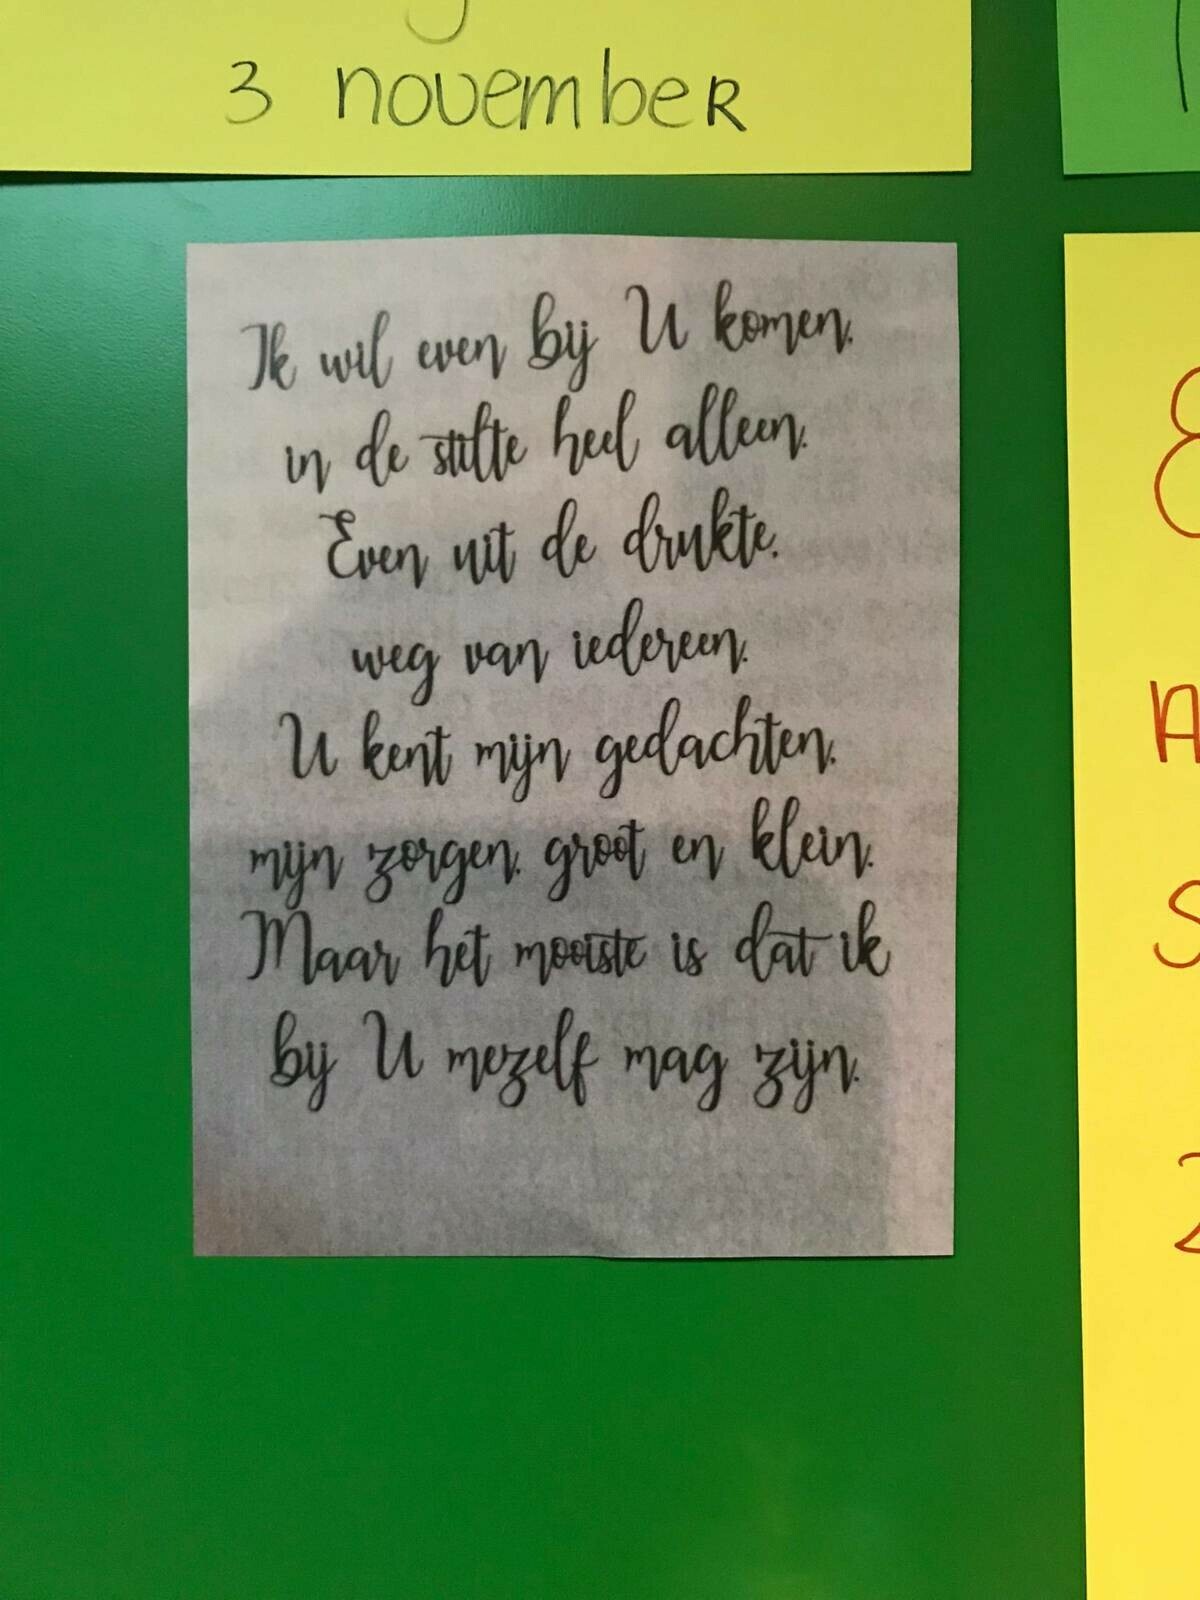 3 november
Ik wil even bij U komen,
in de stilte heel alleen.
Even uit de drukte,
weg van iedereen.
U kent mijn gedachten,
mijn zorgen, groot en klein.
Maar het mooiste is dat ik
bij U mezelf mag zijn.